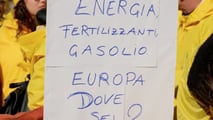 ENERGIA,
FERTILIZZANTI,
GASOLIO
EUROPA
DOVE
SEI?